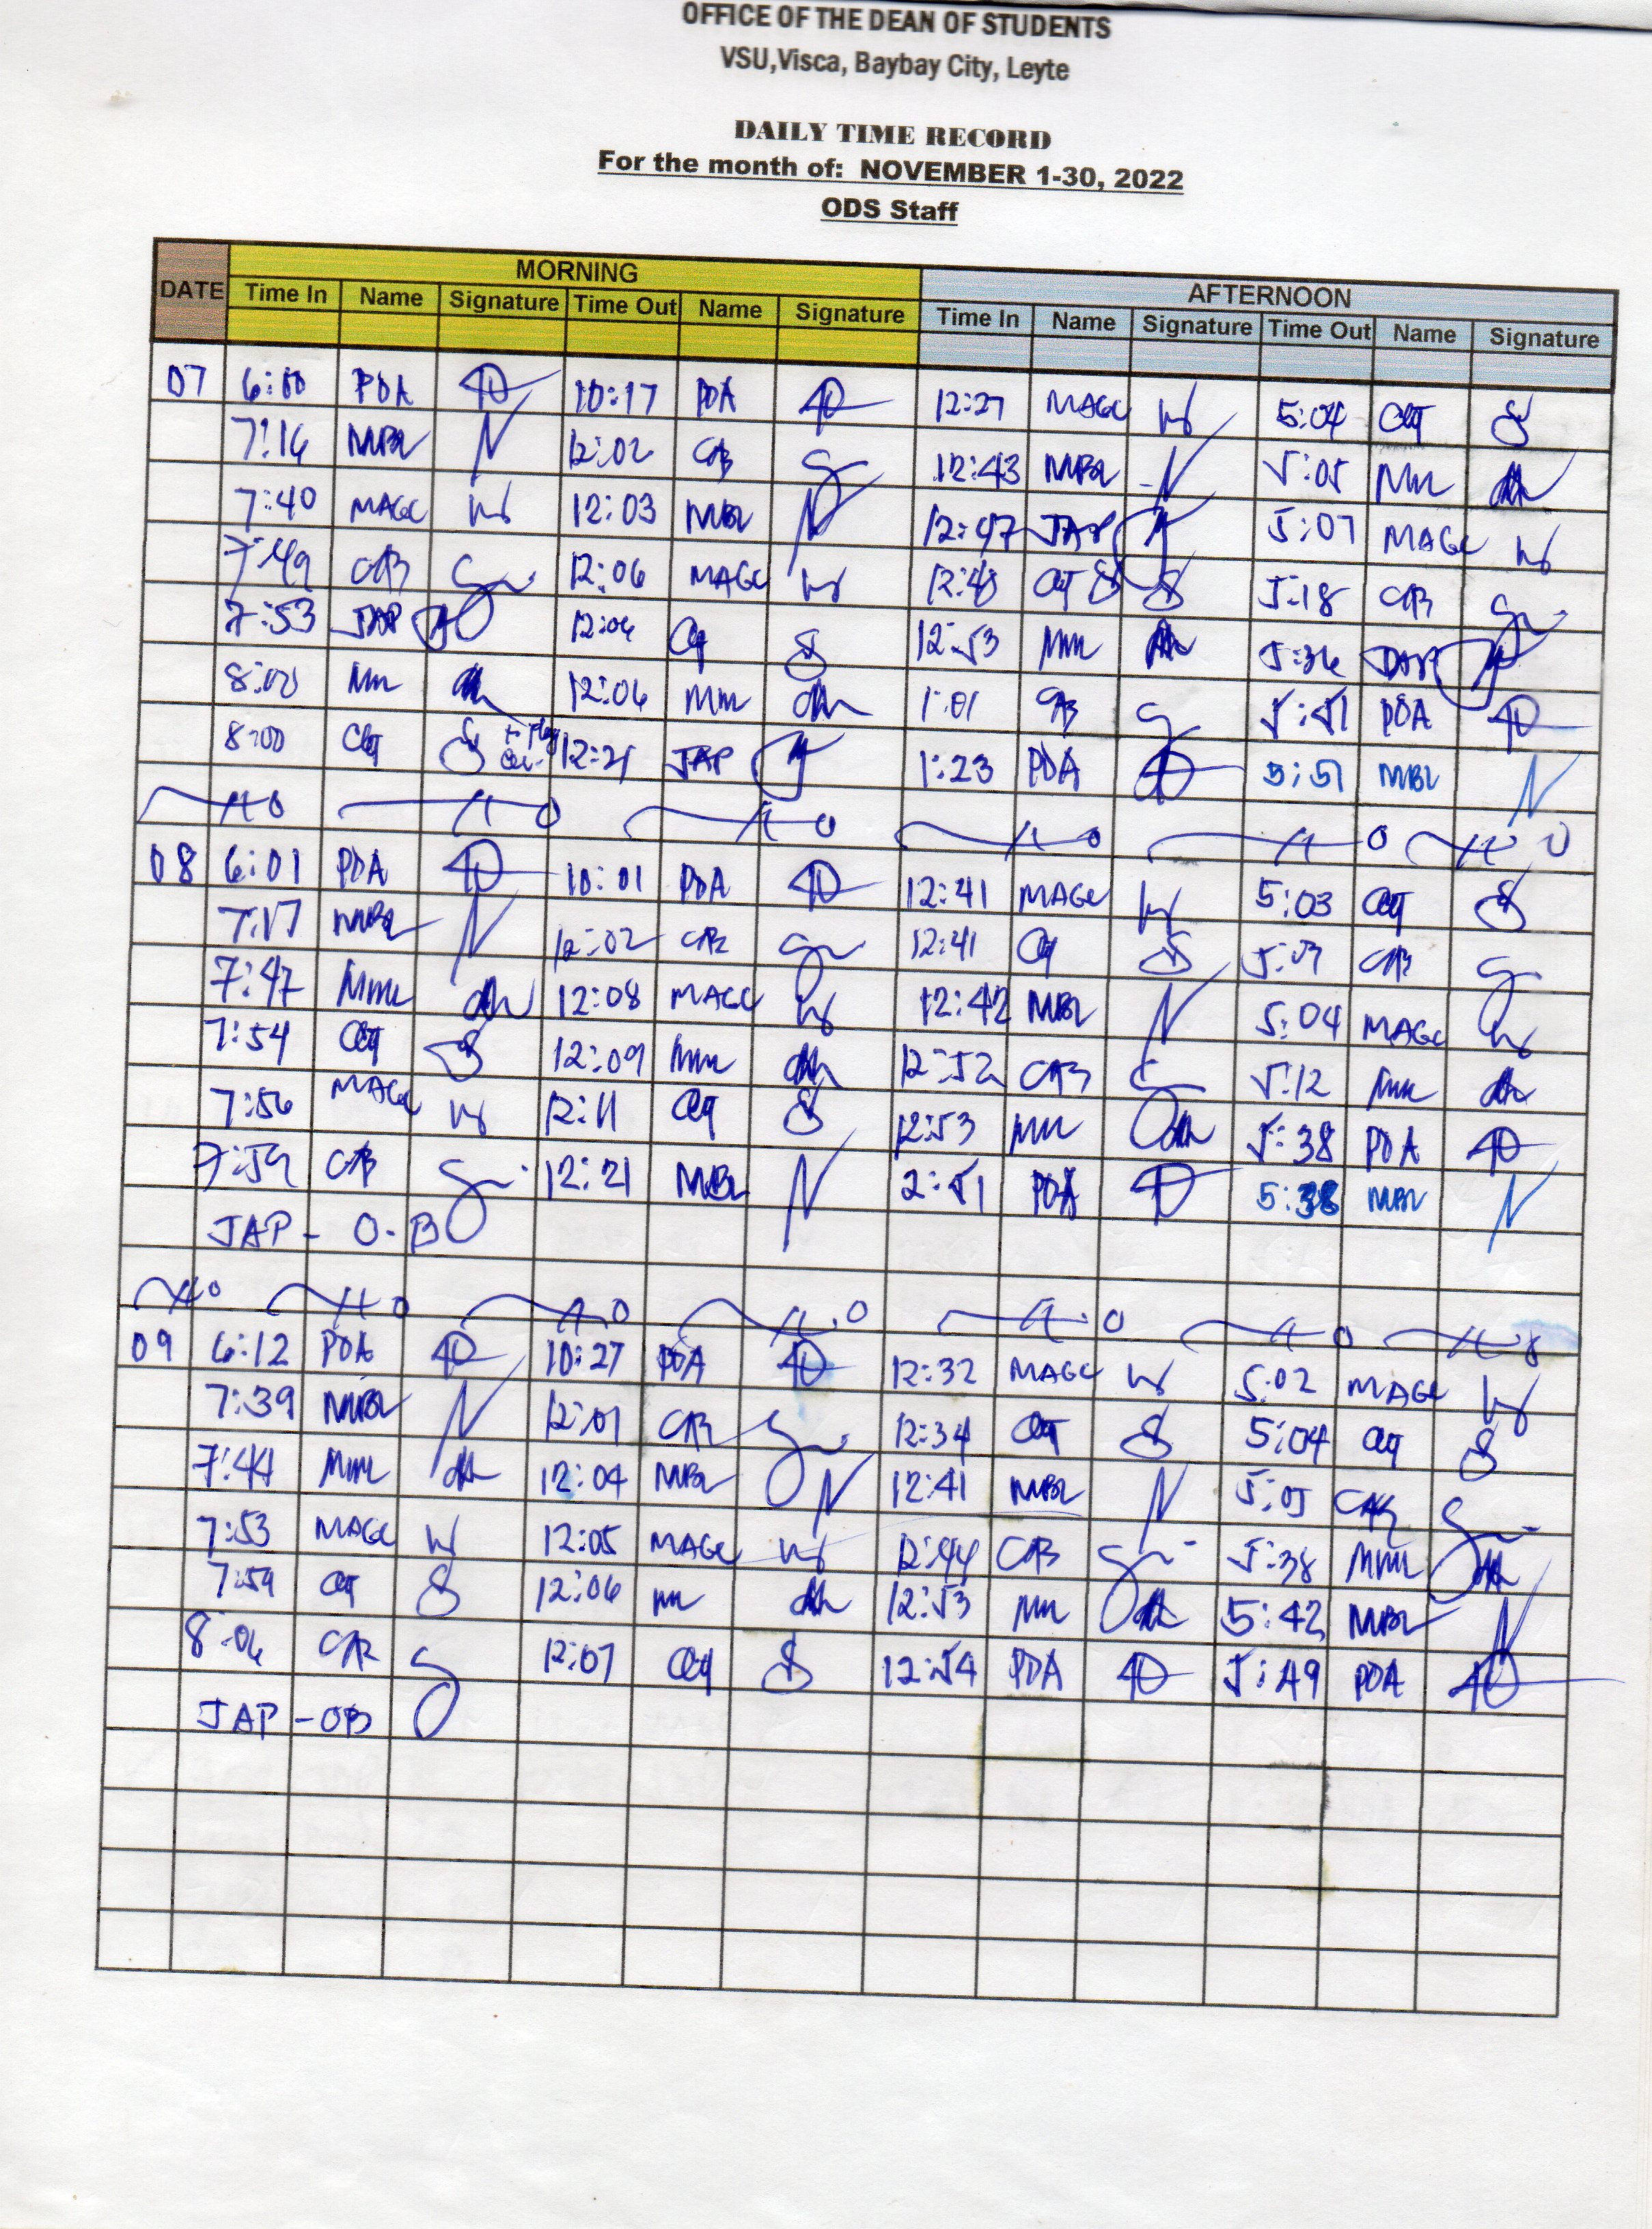 OFFICE OF THE DEAN OF STUDENTS
VSU,Visca, Baybay City, Leyte
DAILY TIME RECORD
For the month of: NOVEMBER 1-30, 2022
ODS Staff
DATE MORNING AFTERNOON
Time In Name Signature Time Out Name Signature Time In Name Signature Time Out Name Signature
07 6:00 PDA 10:17 PDA 12:27 MAGC 5:04
7:16 MBL 12:02 CAB 12:43 MBL 5:05 MM
7:40 MAGC 12:03 MBL 12:47 JAP 5:07 MAGC
7:49 CAB 12:06 MAGC 12:48 5:18 CAB
7:53 JAP 12:06 12:53 MM 5:36 JAP
8:00 MM 12:06 MM 1:01 CAB 5:51 PDA
8:00 12:21 JAP 1:23 PDA 5:51 MBL
08 6:01 PDA 10:01 PDA 12:41 MAGC 5:03
7:17 MBL 12:02 CAB 12:41 5:03 CAB
7:47 MM 12:08 MAGC 12:42 MBL 5:04 MAGC
7:54 12:09 MM 12:52 CAB 5:12 MM
7:56 MAGC 12:11 12:53 MM 5:38 PDA
7:59 CAB 12:21 MBL 2:51 PDA 5:38 MBL
JAP - O.B
09 6:12 PDA 10:27 PDA 12:32 MAGC 5:02 MAGC
7:39 MBL 12:01 CAB 12:34 5:04
7:44 MM 12:04 MBL 12:41 MBL 5:05 CAB
7:53 MAGC 12:05 MAGC 12:44 CAB 5:38 MM
7:59 12:06 MM 12:53 MM 5:42 MBL
8:06 CAB 12:07 12:54 PDA 5:49 PDA
JAP - OB